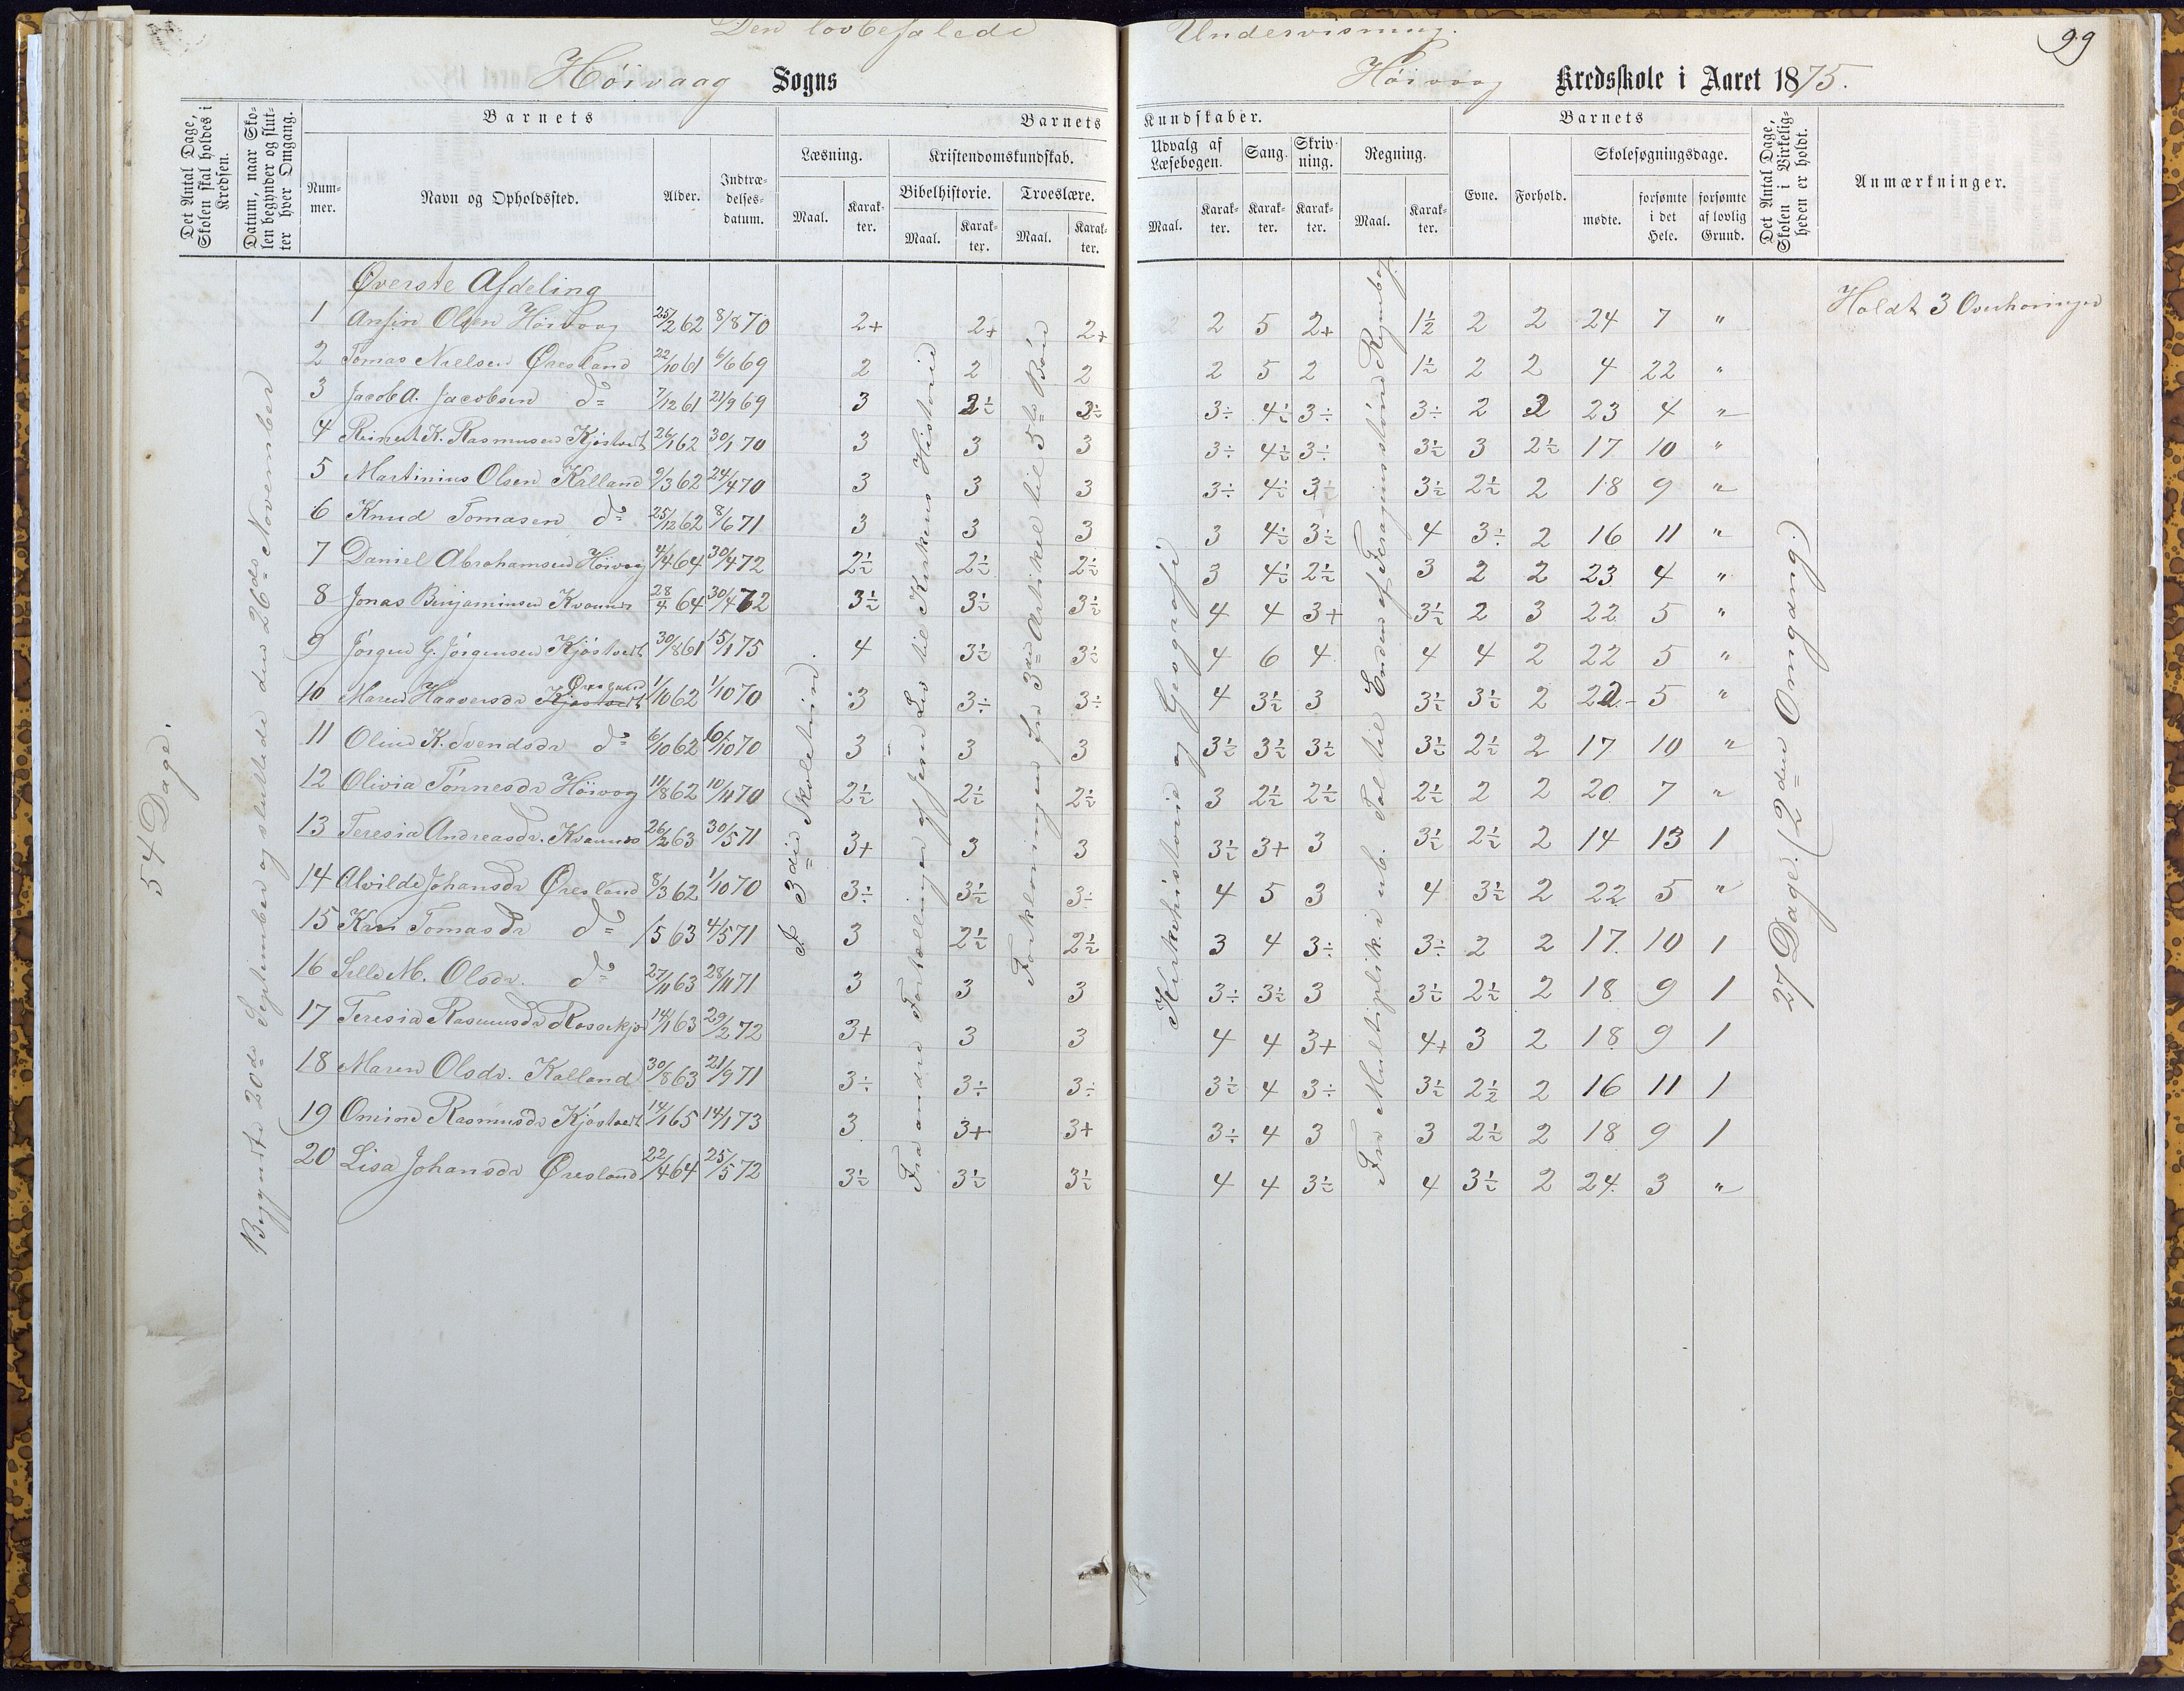 Den lovbefalede Undervisning.
99
Höivaag Sogns Höivaag Kredsskole i Aaret 1875.
Det Antal Dage, Skolen skal holdes i Kredsen.
Datum, naar Skolen begynder og slutter hver Omgang.
Barnets
Nummer.
Navn og Opholdssted.
Alder.
Indtrædelsesdatum.
Barnets Kundskaber.
Læsning.
Maal.
Karakter.
Kristendomskundskab.
Bibelhistorie.
Maal.
Karakter.
Troeslære.
Maal.
Karakter.
Udvalg af Læsebogen.
Maal.
Karakter.
Sang.
Karakter.
Skrivning.
Karakter.
Regning.
Maal.
Karakter.
Barnets
Evne.
Forhold.
Skolesøgningsdage.
mødte.
forsømte i det Hele.
forsømte af lovlig Grund.
Det Antal Dage, Skolen i Virkeligheden er holdt.
Anmærkninger.
54 Dage.
Begyndte 20de September og sluttede den 26de November
I 3die Skoletrin.
Fra andre Fortællinger af Jesu Liv til Kirkens Historie
Forklaringen fra 3die Artikel til 5te Bøn
Kirkehistorie og Geografi
Fra Multiplik. i ub. Tal til Enden af
27 Dage. (2den Omgang.)
Holdt 3 Overhøringer
Øverste Afdeling
1 Ansin Olsen Höivaag 25/2 62 8/8 70 2+ 2+ 2+ 2 5 2+ 1½ 2 2 24 7 "
2 Tomas Nielsen Øresland 22/10 61 6/6 69 2 2 2 2 5 2 1½ 2 2 4 22 "
3 Jacob A. Jacobsen do 7/12 61 21/9 69 3 2½ 3½ 3÷ 4½ 3÷ 3÷ 2 2 23 4 "
4 Reinert K. Rasmusen Kjøstvedt 26/1 62 30/1 70 3 3 3 3÷ 4½ 3÷ 3½ 3 2½ 17 10 "
5 Martinius Olsen Kalland 9/3 62 24/4 70 3 3 3 3÷ 4½ 3½ 3½ 2½ 2 18 9 "
6 Knud Tomasen do 25/12 62 8/6 71 3 3 3 3 4½ 3½ 4 3÷ 2 16 11 "
7 Daniel Abrahamsen Höivaag 4/4 64 30/4 72 2½ 2½ 2½ 3 4½ 2½ 3 2 2 23 4 "
8 Jonas Benjaminsen Kvannes 28/4 64 30/4 72 3½ 3½ 3½ 4 4 3+ 3½ 2 3 22 5 "
9 Jörgen G. Jörgensen Kjöstvedt 30/8 61 15/1 75 4 3½ 3½ 4 6 4 4 4 2 22 5 "
10 Maren Haaversdr Kjöstvedt Øresland 1/10 62 1/10 70 3 3÷ 3÷ 4 3½ 3 3½ 3½ 2 22 5 "
11 Oline K. Svendsdr do 6/10 62 6/10 70 3 3 3 3½ 3½ 3½ 3½ 2½ 2 17 10 "
12 Olivia Tönnesdr Höivaag 11/8 62 10/11 70 2½ 2½ 2½ 3 2½ 2½ 2½ 2 2 20 7 "
13 Teresia Andreasdr. Kvannes 26/2 63 30/5 71 3+ 3 3 3½ 3+ 3 3½ 2½ 2 14 13 1
14 Alvilde Johansdr Øresland 8/3 62 1/10 70 3÷ 3½ 3÷ 4 5 3 4 3½ 2 22 5 "
15 Kari Tomasdr do 1/5 63 4/5 71 3 2½ 2½ 3 4 3÷ 3÷ 2 2 17 10 1
16 Sille M. Olsdr. do 27/11 63 28/11 71 3 3 3 3÷ 3½ 3 3½ 2½ 2 18 9 1
17 Teresia Rasmusdr 14/1 63 29/2 72 3+ 3 3 4 4 3+ 4+ 3 2 18 9 1
18 Maren Olsdr. Kalland 30/8 63 21/9 71 3÷ 3÷ 3÷ 3½ 4 3÷ 3½ 2½ 2 16 11 1
19 Omine Rasmusdr Kjöstvedt 14/1 65 14/1 73 3 3+ 3+ 3÷ 4 3 3 2½ 2 18 9 1
20 Lisa Johansdr Øresland 22/4 64 25/5 72 3½ 3½ 3½ 4 4 3½ 4 3½ 2 24 3 "